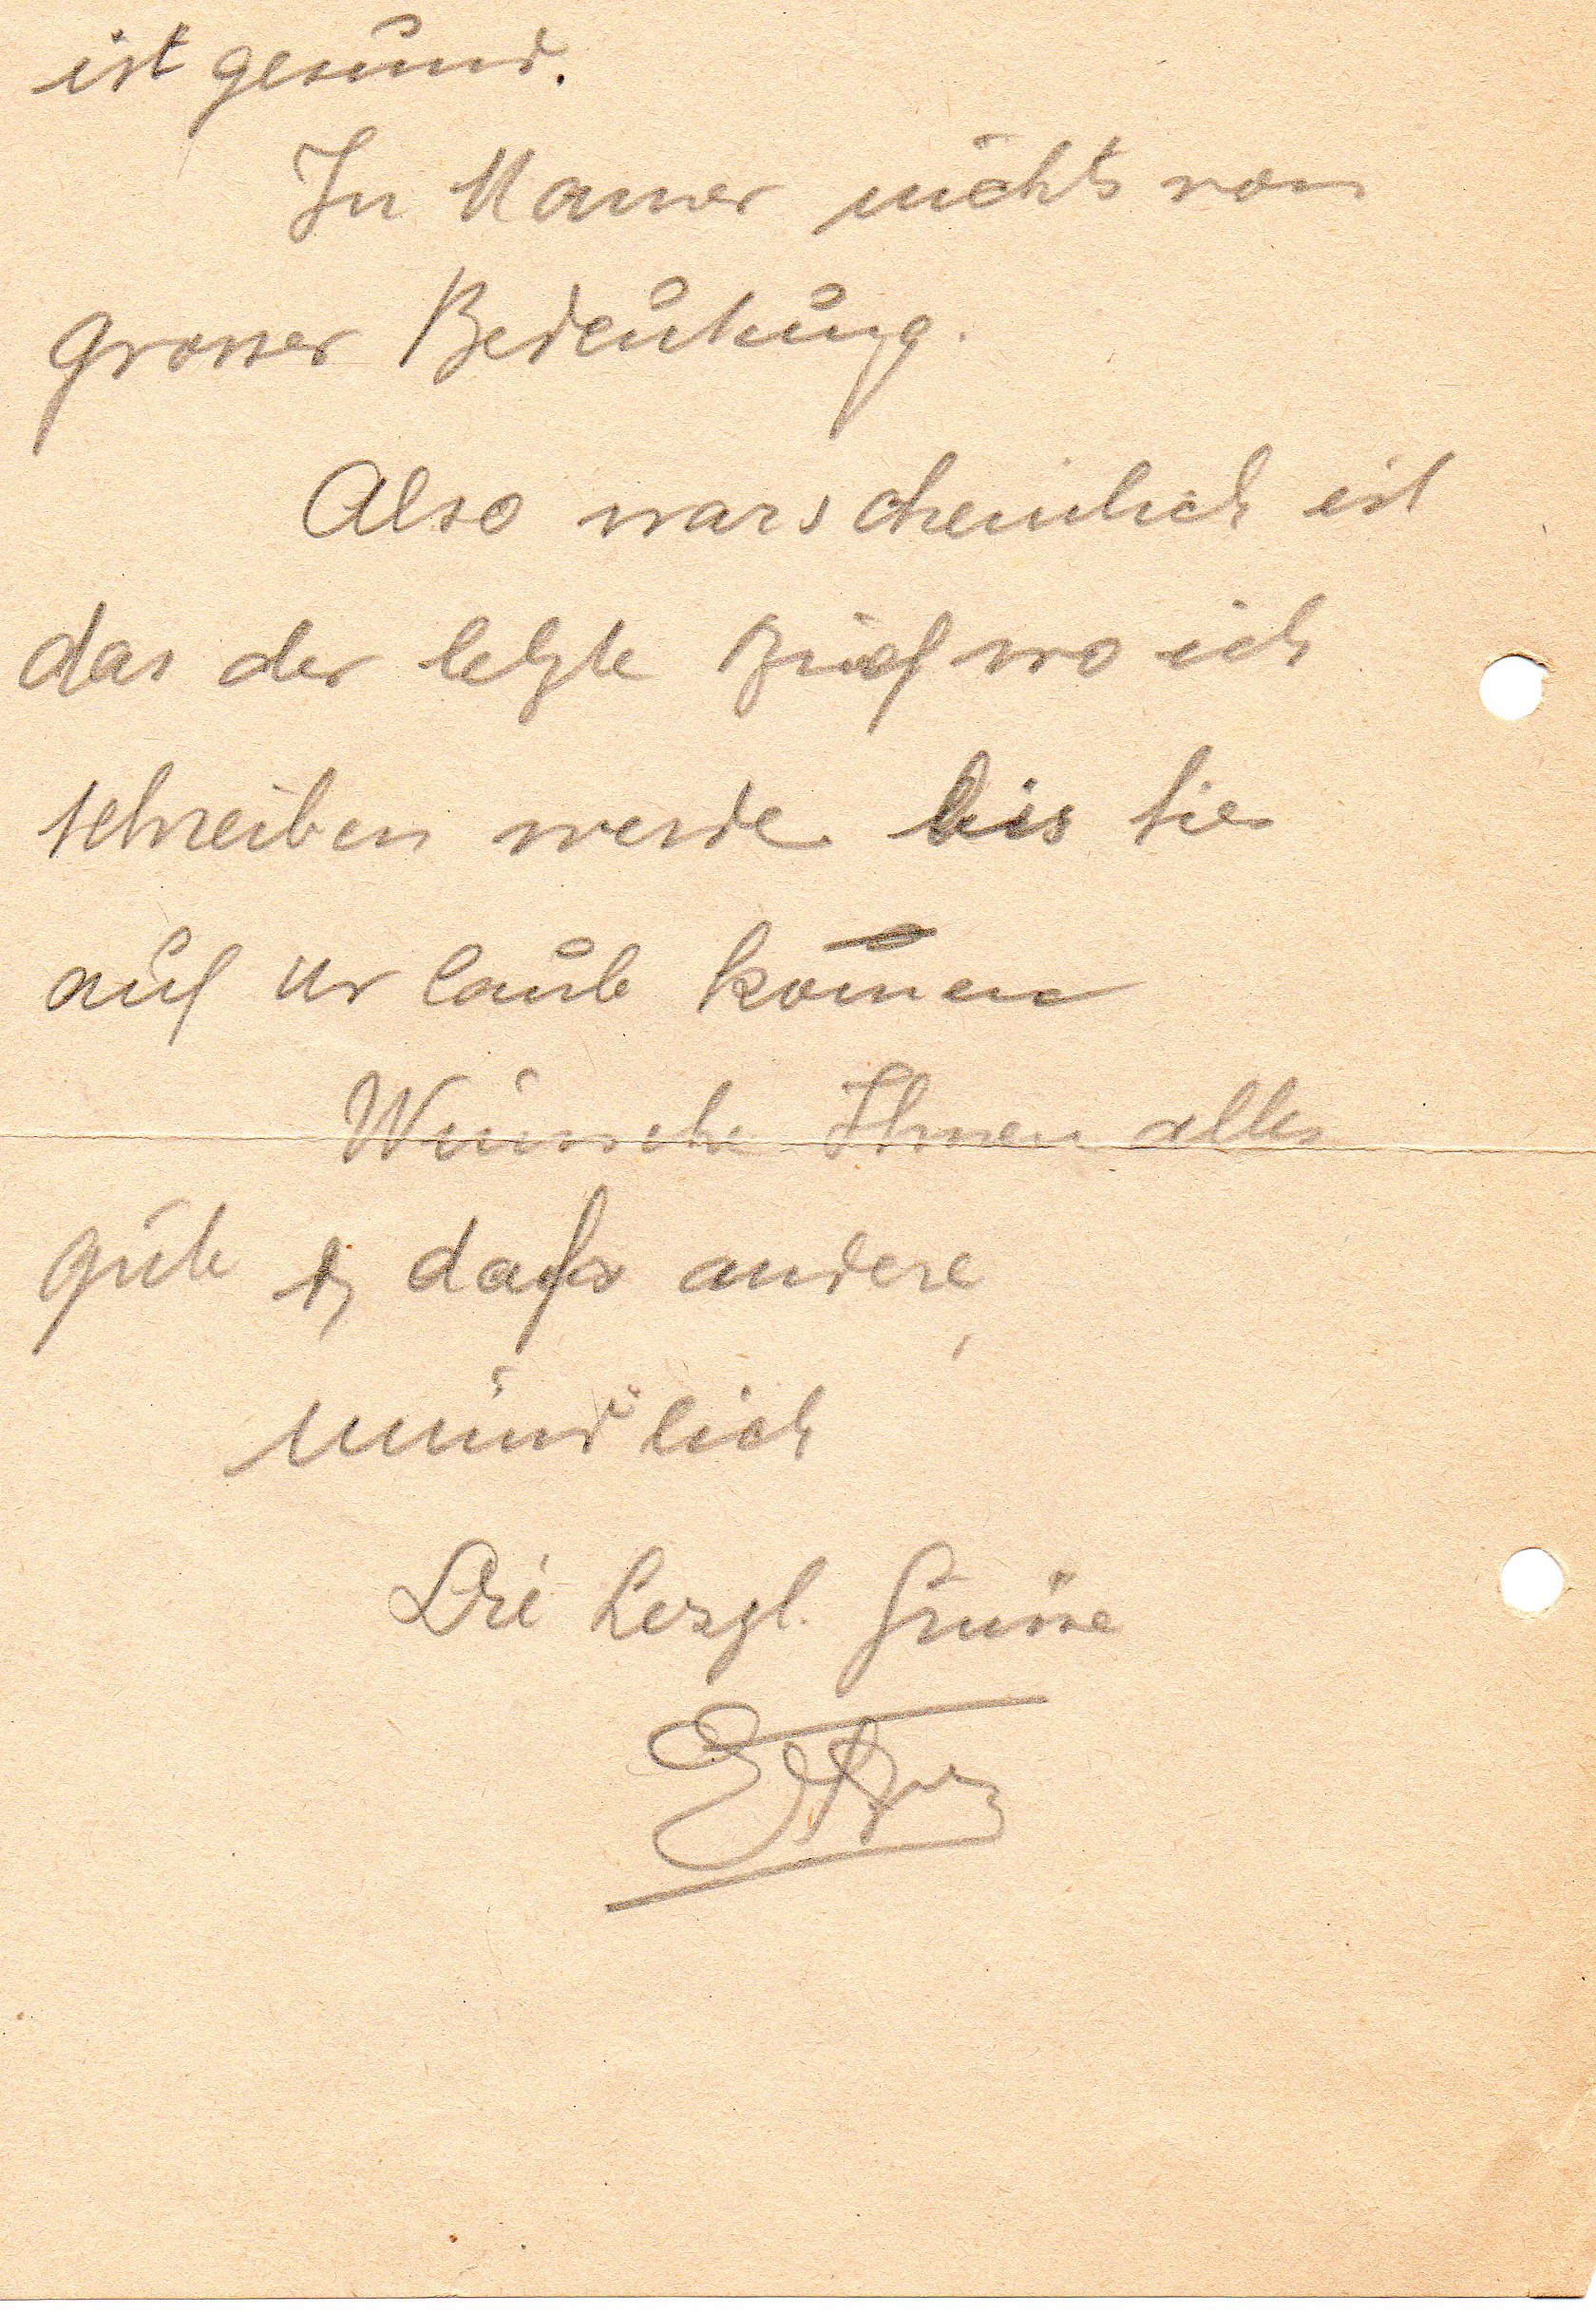 ist gesund.
In Mamer nichts von
grosser Bedeutung.
Also warscheinlich ist
das der letzte Brief wo ich
schreiben werde bis Sie
auf Urlaub komen
Wünsche Ihnen alles
gute & dass andere
mündlich
Die herzl. Grüsse